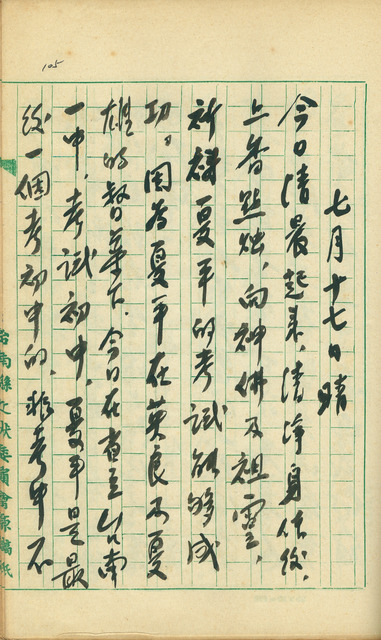 105
七月十七日 晴
今日清晨起来,清淨身体後,
上香點燭,向神佛及祖靈,
祈禱夏平的考試能够成
功。因為夏平在英良不夏
雄的督策下,今日在省立台南
一中,考試初中,夏平是最
後一個考初中的,非考中不
台南縣文獻委員會原稿紙